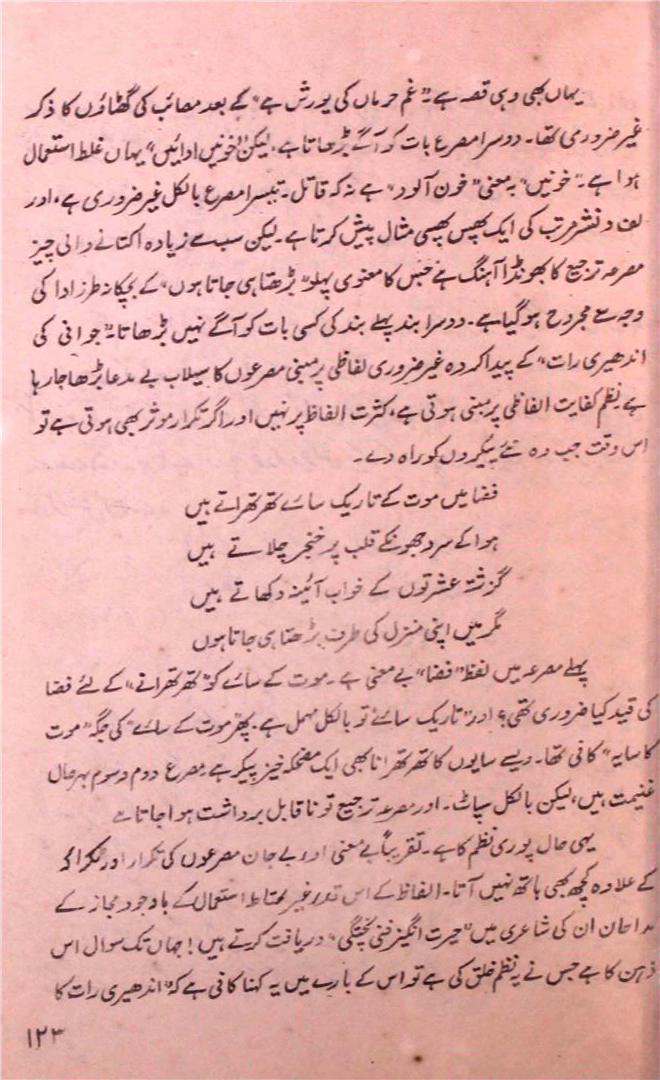 یہاں بھی وہی قصہ ہے۔ "غم حرماں کی یورش ہے" کے بعد مصائب کی گھٹاؤں کا ذکر
غیر ضروری تھا۔ دوسرا مصرع بات کو آگے بڑھاتا ہے، لیکن "خونیں ادائیں" یہاں غلط استعمال
ہوا ہے۔ "خونیں" بہ معنی "خون آلود" ہے نہ کہ قاتل۔ تیسرا مصرع بالکل غیر ضروری ہے، اور
لف و نشر مرتب کی ایک پھس پھسی مثال پیش کرتا ہے۔ لیکن سب سے زیادہ اکتانے والی چیز
مصرعہ ترجیع کا بھونڈا آہنگ ہے جس کا معنوی پہلو "بڑھتا ہی جاتا ہوں" کے بچکانہ طرز ادا کی
وجہ سے مجروح ہو گیا ہے۔ دوسرا بند پہلے بند کی کسی بات کو آگے نہیں بڑھاتا۔ "جوانی کی
اندھیری رات" کے پیدا کردہ غیر ضروری لفاظی پر مبنی مصرعوں کا سیلاب بے مدعا بڑھا جا رہا
ہے۔ نظم کفایت الفاظی پر مبنی ہوتی ہے، کثرت الفاظ پر نہیں اور اگر تکرار موثر بھی ہوتی ہے تو
اس وقت جب وہ نئے پیکروں کو راہ دے۔
فضا میں موت کے تاریک سائے تھرتھراتے ہیں
ہوا کے سرد جھونکے قلب پر خنجر چلاتے ہیں
گزشتہ عشرتوں کے خواب آئینہ دکھاتے ہیں
مگر میں اپنی منزل کی طرف بڑھتا ہی جاتا ہوں
پہلے مصرعہ میں لفظ "فضا" بے معنی ہے۔ موت کے سائے کو "تھرتھرانے" کے لئے فضا
کی قید کیا ضروری تھی؟ اور "تاریک سائے" تو بالکل مہمل ہے۔ پھر "موت کے سائے" کی جگہ "موت
کا سایہ" کافی تھا۔ ویسے سایوں کا تھرتھرانا بھی ایک مضحکہ خیز پیکر ہے۔ مصرع دوم و سوم بہرحال
غنیمت ہیں، لیکن بالکل سپاٹ۔ اور مصرعہ ترجیع تو ناقابل برداشت ہوا جاتا ہے
یہی حال پوری نظم کا ہے۔ تقریباً بے معنی اور بے جان مصرعوں کی تکرار اور ٹکراؤ
کے علاوہ کچھ بھی ہاتھ نہیں آتا۔ الفاظ کے اس قدر غیر محتاط استعمال کے باوجود مجاز کے
مداحان ان کی شاعری میں "حیرت انگیز فنی پختگی" دریافت کرتے ہیں! جہاں تک سوال اس
ذہن کا ہے جس نے یہ نظم خلق کی ہے تو اس کے بارے میں یہ کہنا کافی ہے کہ "اندھیری رات کا
۱۲۳